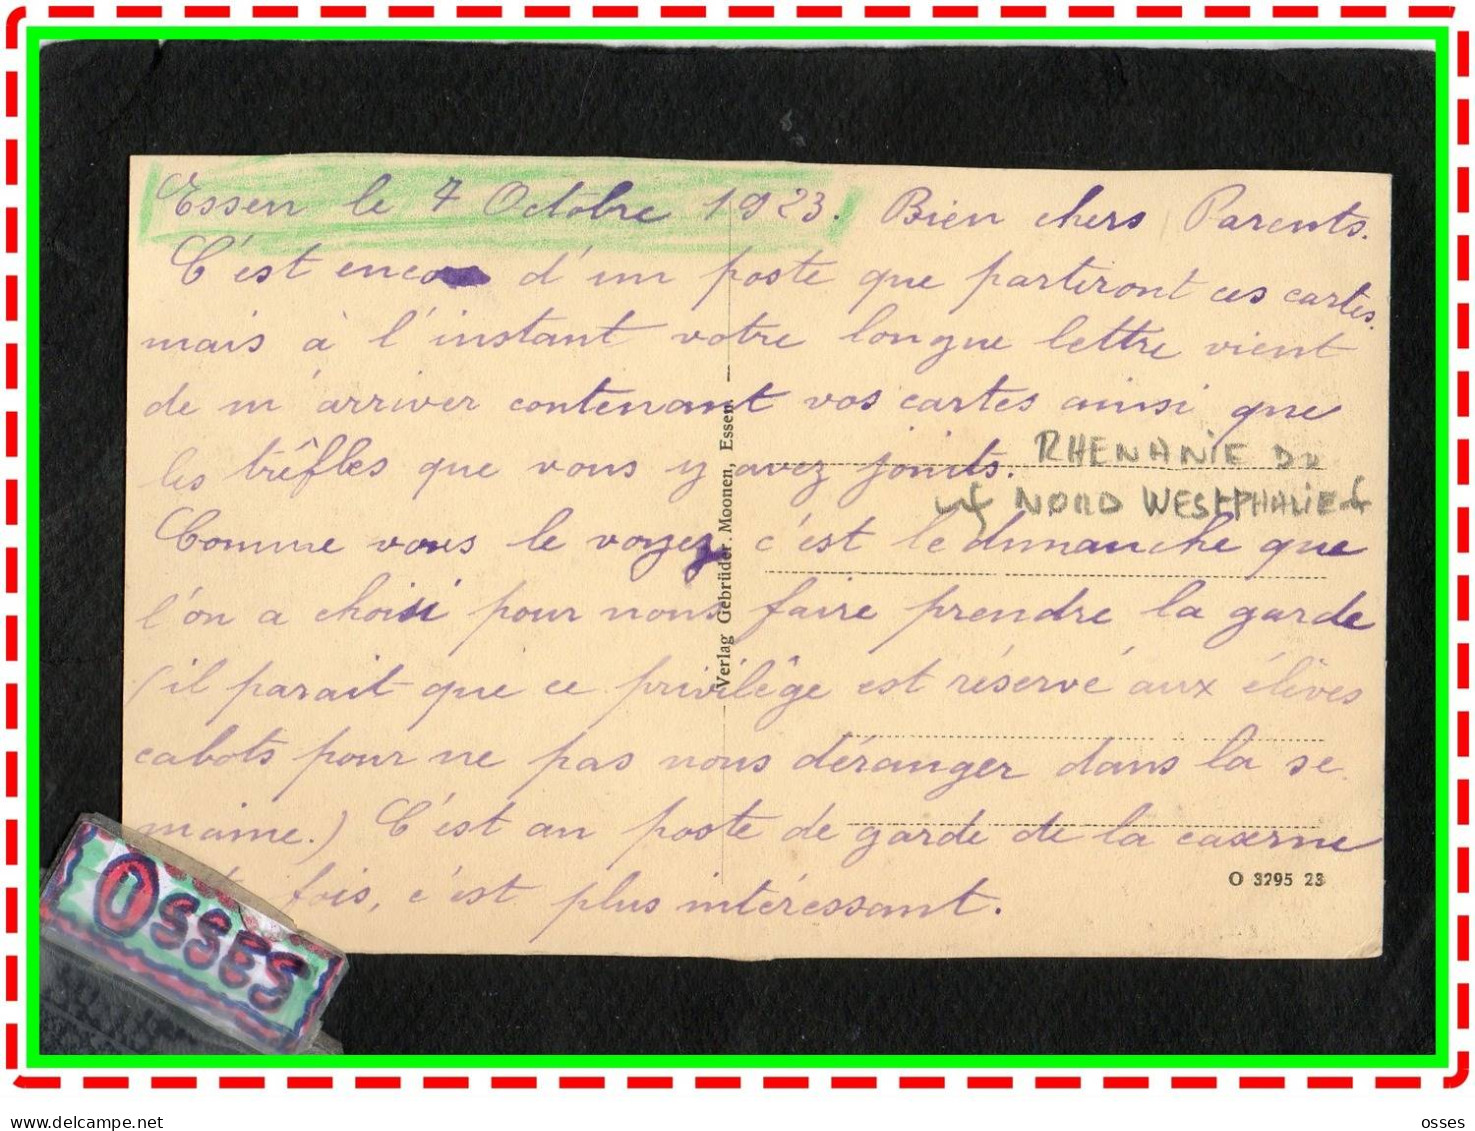 Essen le 7 Octobre 1923. Bien chers Parents.
C'est encore d'un poste que partiront ces cartes.
mais à l'instant votre longue lettre vient
de m'arriver contenant vos cartes ainsi que
les trêfles que vous y avez joints.
RHENANIE DU
NORD WESTPHALIE
Comme vous le voyez c'est le dimanche que
l'on a choisi pour nous faire prendre la garde
(il parait que ce privilêge est réservé aux élêves
cabots pour ne pas nous déranger dans la se
maine.) C'est au poste de garde de la caserne
fois, c'est plus intéressant.
Verlag Gebrüder Moonen, Essen.
O 3295 23
OSSES
delcampe.net
osses